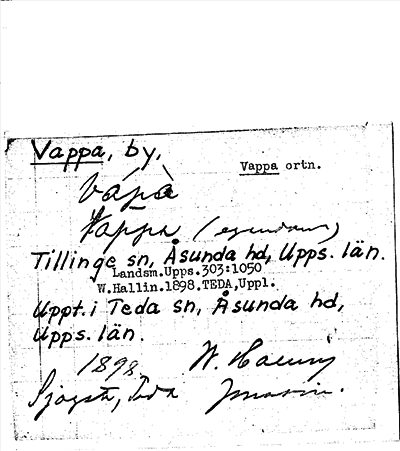 Vappa, by,
Vappa ortn.
vápà
Vappa (egendom)
Tillinge sn, Åsunda hd, Upps. län.
Landsm.Upps.303:1050
W.Hallin.1898.TEDA,Uppl.
Uppt. i Teda sn, Åsunda hd,
Upps. län.
1898. W. Hallin
Teda